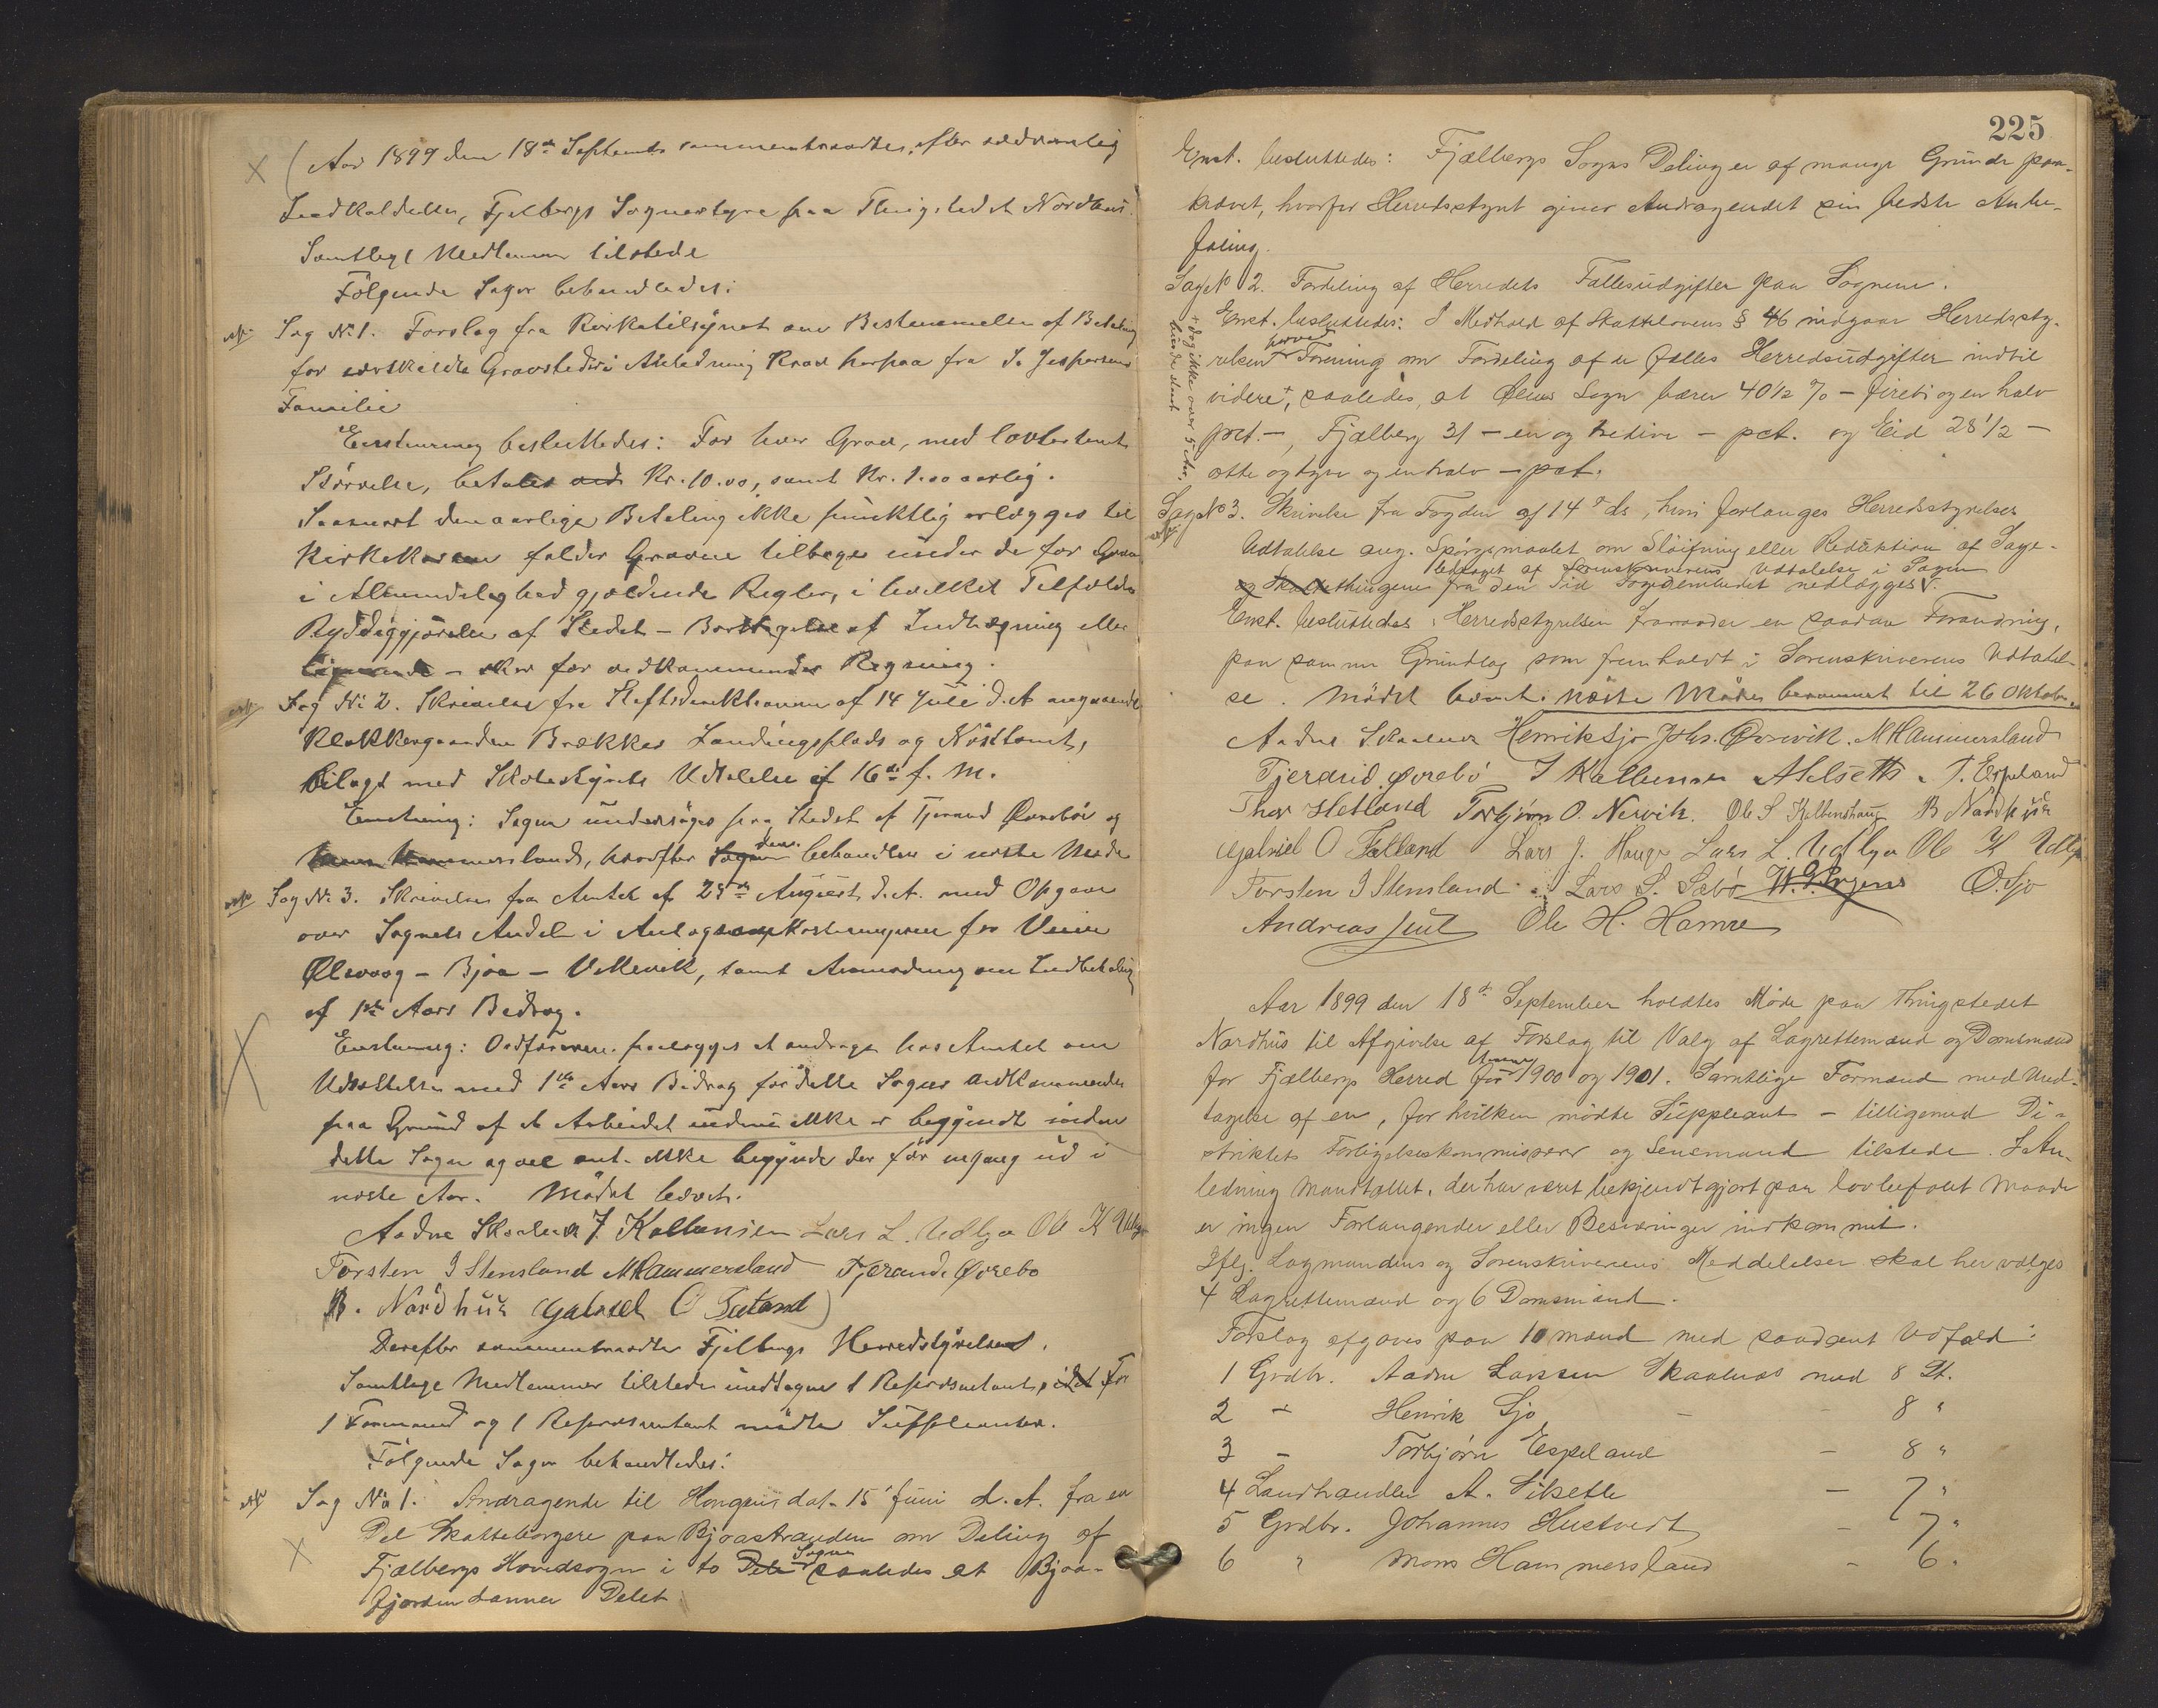 Aar 1899 den 18de Septembr sammentraadtes, efter sædvanlig
Indkaldelse, Fjelbergs Sognestyre paa Thingstedet Nordhus.
Samtlige Medlemmer tilstede
Følgende Sager behandledes:
Sag No 1. Forslag fra Kirketilsynet om Bestemmelse af Betaling
for særskildte Gravsteder i Anledning Krav herpaa fra J. Jespersens
Familie
Enstemmig besluttedes: For hver Grav, med lovbestemt
Størrelse, betales Kr. 10.00, samt Kr. 1.00 aarlig.
Saasnart den aarlige Betaling ikke punktlig erlægges til
Kirkekassen falder Gravene tilbage under de for Grave
i Almindelighed gjældende Regler, i hvilket Tilfælde
Ryddiggjørelse af Stedet – Borttagelse af Indhegning eller
lignende – sker for vedkommendes Regning.
Sag No 2. Skrivelse fra Stiftsdirektionen af 14 Juli d. A. angaaende
Klokkergaarden Brækkes Landingsplads og Nøsttomt,
bilagt med Skolestyrets Udtalelse af 16de f. M.
Enstemmig: Sagen undersøges paa Stedet af Tjerand Øvrebø og
Hammersland, hvorefter Sagen den behandles i neste Møde
Sag No 3. Skrivelse fra Amtet af 25de August d. A. med Opgave
over Sognets Andel i Anlægsomkostningerne for Veien
Ølsvaag – Bjoa – Vikevik, samt Anmodning om Indbetaling
af 1ste Aars Bidrag.
Enstemmig: Ordføreren paalægges at andrage hos Amtet om
Udsættelse med 1ste Aars Bidrag for dette Sogns Vedkommende
paa Grund af at Arbeidet endnu ikke er begyndt inden
dette Sogn og vel ant. ikke begynder der før engang ud i
neste Aar. Mødet hævet.
Aadne Skaalnes J. Kallensen Lars L. Udbja Ole K Udbja
Torsten J Stensland MHammersland Tjerand Øvrebø
B. Nordhuus Gabriel O Fatland
Derefter sammentraadte Fjelbergs Herredstyrelse.
Samtlige Medlemmer tilstede undtagen 1 Repræsentant, idet for
1 Formand og 1 Repræsentant mødte Suppleanter.
Følgende Sager behandledes:
Sag No 1. Andragende til Kongen dat. 15 Juni d. A. fra en
Del Skatteborgere paa Bjoastranden om Deling af
Fjælbergs Hovedsogn i to Dele Sogne saaledes at Bjoa-
fjorden danner Delet
225
Enst. besluttedes: Fjælbergs Sogns Deling er af mange Grunde paa-
krævet, hvorfor Herredsstyret giver Andragendet sin bedste Anbe-
faling.
Sag No 2. Fordeling af Herredets Fællesudgifter paa Sognene.
Enst. besluttedes: I Medhold af Skattelovens § 46 indgaar Herredssty-
relsen herved Forening om Fordeling af de fælles Herredsudgifter indtil
videre +, saaledes, at Ølens Sogn bærer 40 1/2 % – firti og en halv
pct. –, Fjælberg 31 – en og tredive – pct. og Eid 28 1/2 –
otte og tyve og en halv – pct.
+ dog ikke over 5 Aar,
Sag No 3. Skrivelse fra Fogden af 14de ds, hvori forlanges Herredsstyrelsens
Udtalelse ang. Spørgsmaalet om Sløifning eller Reduktion af Sage-
og Skattethingene fra den Tid Fogedembedet nedlægges ledsaget af Sorenskriverens Udtalelse i Sagen
Enst. besluttedes: Herredsstyrelsen fraraader en saadan Forandring,
paa samme Grundlag som fremholdt i Sorenskriverens Udtalel-
se. Mødet hævet. Næste Møde berammet til 26 Oktober.
Aadne Skaalnes Henrik Sjo Johs. Ørevik. MHammersland
Tjerand Øvrebø J Kallensen A Helseth. T. Espeland
Thor Hetland Torbjørn O. Nervik. Ole S Kalbenshaug B Nordhuus
Gabriel O Fatland Lars J. Hauge Lars L. Udbja Ole K Udbja
Torsten J Stensland Lars S. Sæbø O. Sjo
Andreas Juul Ole H. Hamre
Aar 1899 den 18de September holdtes Møde paa Thingstedet
Nordhus til Afgivelse af Forslag til Valg af Lagrettemænd og Domsmænd
for Fjælbergs Herred for Aarene 1900 og 1901. Samtlige Formænd med Und-
tagelse af en, for hvilken mødte Suppleant – tilligemed Di-
striktets Forligelseskommissær og Lensmand tilstede. I An-
ledning Mandtallet, der har været bekjendtgjort paa lovbefalet Maade
er ingen Forlangender eller Besværinger indkommet.
Iflg. Lagmandens og Sorenskriverens Meddelelser skal her vælges
4 Lagrettemænd og 6 Domsmænd.
Forslag afgaves paa 10 mænd med saadant Udfald:
1 Grdbr. Aadne Larssen Skaalnes med 8 St.
2 – Henrik Sjo – – 8 "
3 – Torbjørn Espeland – 8 "
4 Landhandler A. – 7 "
5 Grdbr. Johannes Hustvedt – 7 "
6 " Mons Hammersland – 6 "